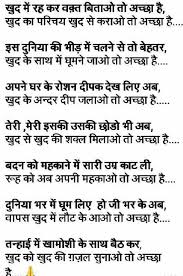 खुद में रह कर वक़्त बिताओ तो अच्छा है,
खुद का परिचय खुद से कराओ तो अच्छा है....
इस दुनिया की भीड़ में चलने से तो बेहतर,
खुद के साथ में घूमने जाओ तो अच्छा है....
अपने घर के रोशन दीपक देख लिए अब,
खुद के अन्दर दीप जलाओ तो अच्छा है.....
तेरी ,मेरी इसकी उसकी छोडो भी अब,
खुद से खुद की शक्ल मिलाओ तो अच्छा है....
बदन को महकाने में सारी उम्र काट ली,
रूह को अब अपनी महकाओ तो अच्छा है.....
दुनिया भर में घूम लिए हो जी भर के अब,
वापस खुद में लौट के आओ तो अच्छा है....
तन्हाई में खामोशी के साथ बैठ कर,
खुद को खुद की ग़ज़ल सुनाओ तो अच्छा
है....